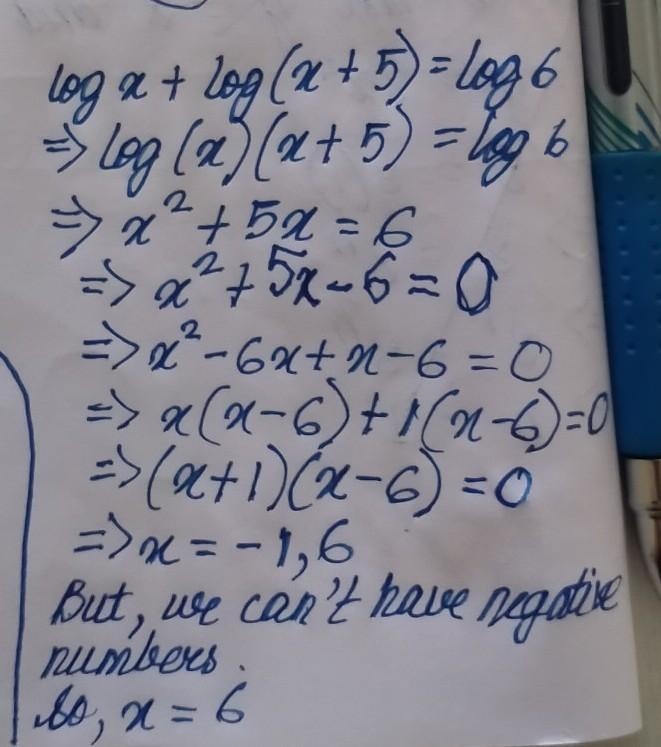 log x + log(x + 5) = log 6
=> log (x)(x + 5) = log 6
=> x² + 5x = 6
=> x² + 5x - 6 = 0
=> x² - 6x + x - 6 = 0
=> x(x - 6) + 1(x - 6) = 0
=> (x + 1)(x - 6) = 0
=> x = -1, 6
But, we can't have negative
numbers.
So, x = 6